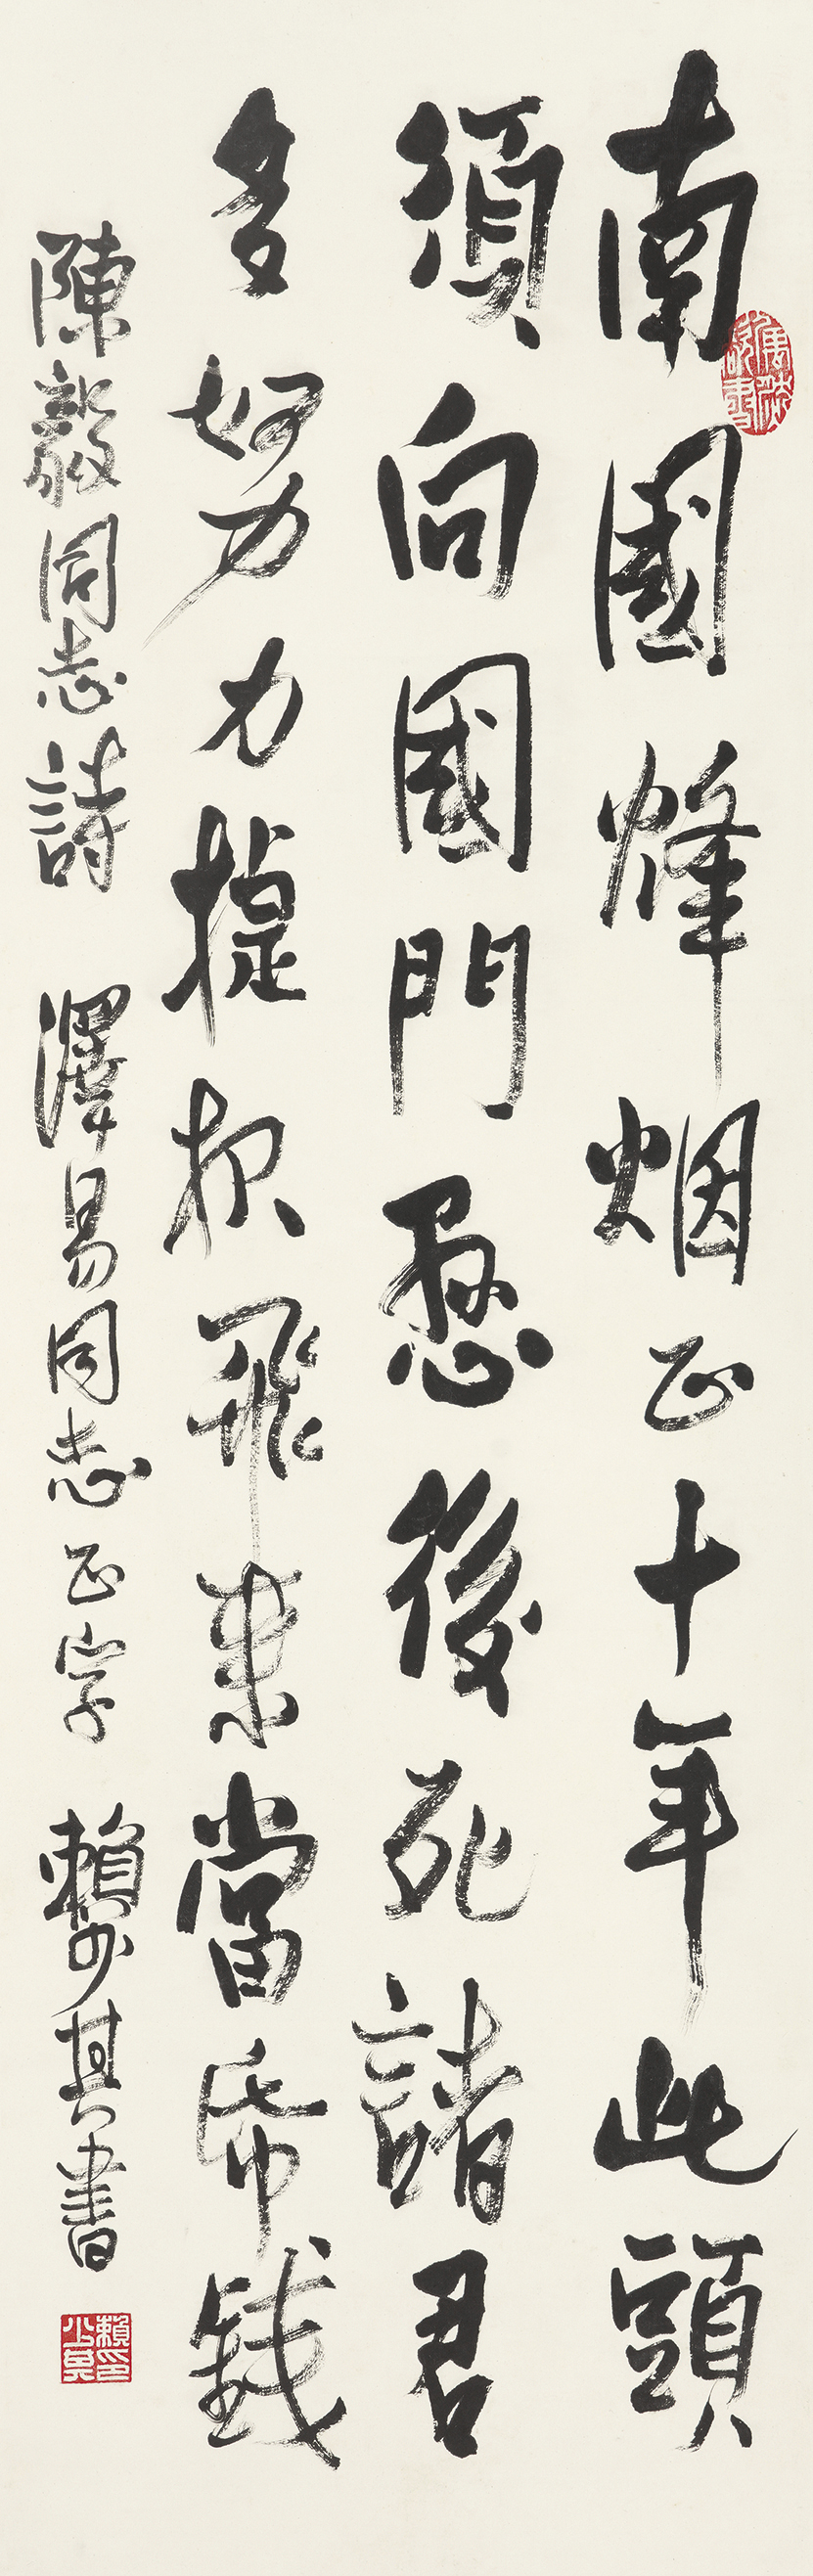 南國烽烟正十年此頭
須向國門懸後死諸君
多努力力捷报飛來當紙錢
陳毅同志詩 澤易同志正字 賴少其書
賴少其印